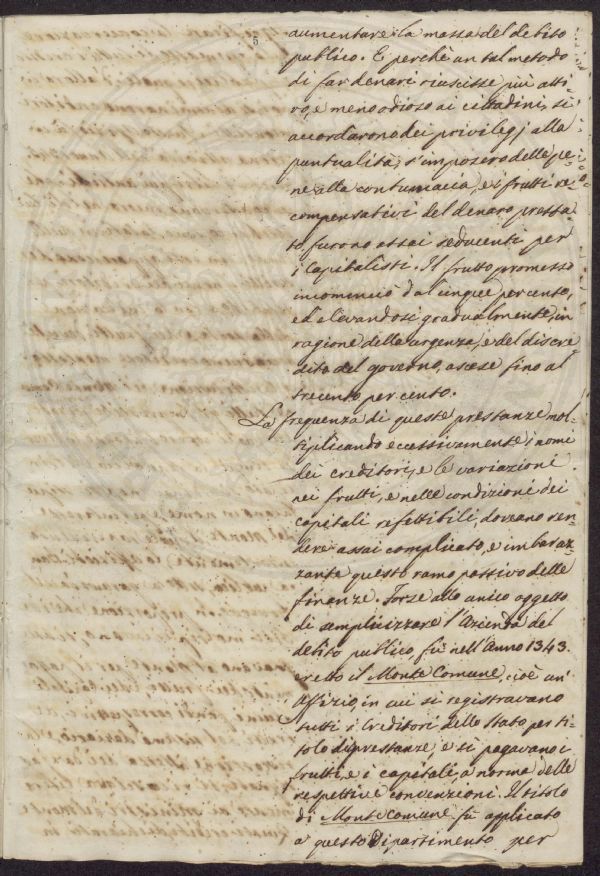 5
aumentare la massa del debito
publico. E perchè un tal metodo
di far denari riuscisse più atti=
vo, e meno odioso ai cittadini, si
accordarono dei privilegj alla
puntualità s'imposero delle pe=
ne alla contumacia, e i frutti re=
compensativi del denaro presta=
to, furono assai seducenti per
i Capitalisti. Il frutto promesso
incominciò dal cinque per cento,
ed elevandosi gradualmente, in
ragione della urgenza, e del discre=
dito del governo, ascese fino al
trecento per cento.
La frequenza di queste prestanze mol=
tiplicando eccessivamente i nomi
dei creditori, e le variazioni
nei frutti, e nelle condizioni dei
capitali refettibili, doveano ren=
dere assai complicato, e imbaraz=
zante questo ramo passivo delle
finanze. Forse allo unico oggetto
di semplicizzare l'Azienda del
debito publico, fù nell'Anno 1343.
eretto il Monte Comune, cioè un'
Uffizio, in cui si registravano
tutti i Creditori dello Stato per ti=
tolo di prestanze e si pagavano i
frutti, e i capitali, a norma delle
respettive convenzioni. Il titolo
di Monte Comune fù applicato
a questo Dipartimento per